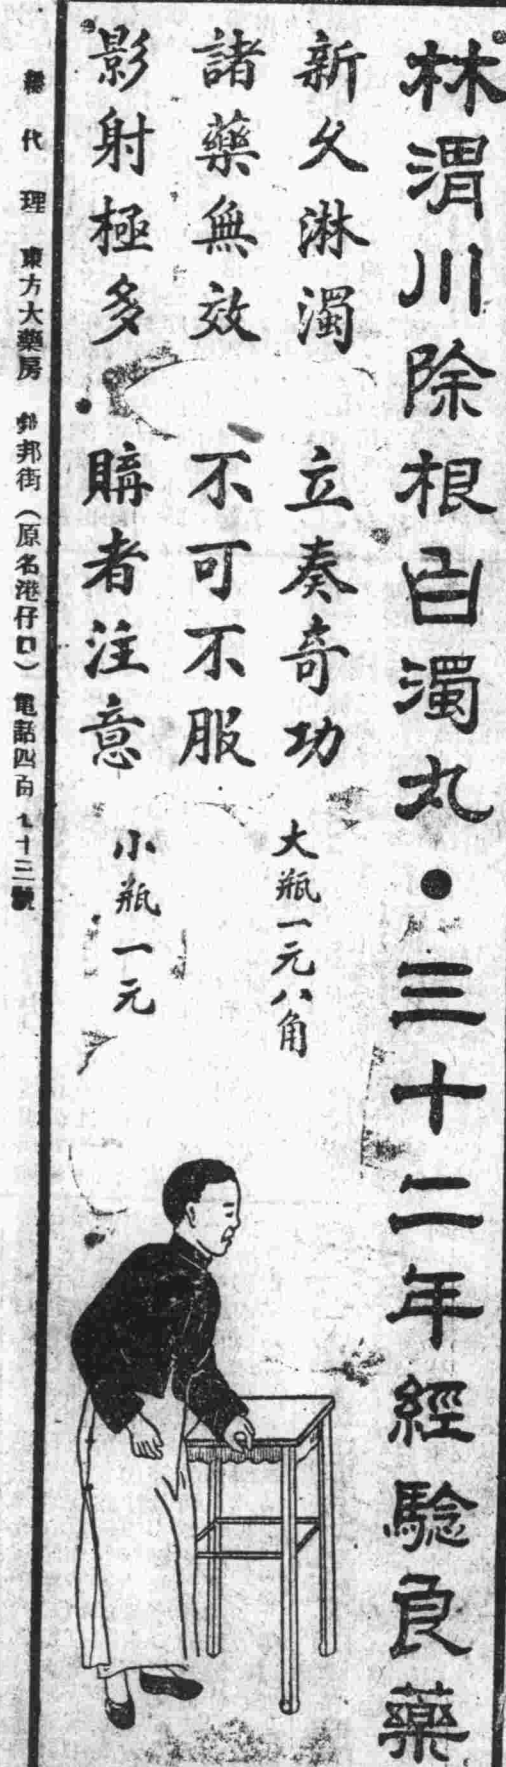 林渭川除根白濁丸•三十二年經驗良藥
新久淋濁 立奏奇功
諸藥無效 不可不服
影射極多 購者注意
大瓶一元八角
小瓶一元
總代理 東方大藥房 邦街(原名港仔口)電話四百九十三號